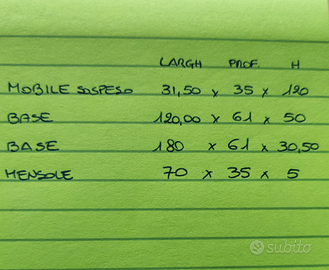 LARGH PROF. H
MOBILE SOSPESO 31,50 x 35 x 120
BASE 120,00 x 61 x 50
BASE 180 x 61 x 30,50
MENSOLE 70 x 35 x 5
subito